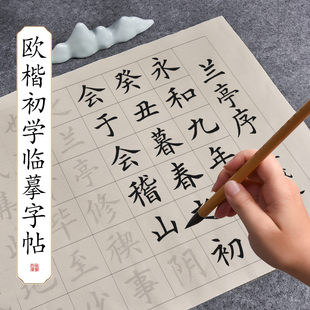 欧楷初学临摹字帖
兰亭序
永和九年
癸丑暮春之初
会于会稽山阴
兰亭修禊事
毕至